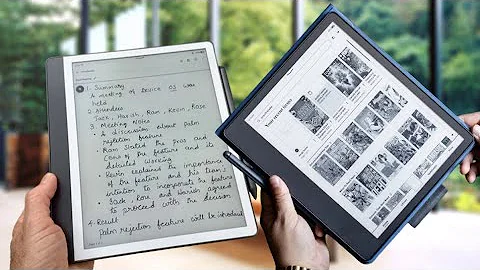 1. Summary
A meeting of Device 03 was
held
2. Attendees
Jack, Harish, Ram, Keom, Rose
3. Meeting Notes
• A discussion about palm
rejetion feature
• Ram stated the pros and
Cons of the feature and its
detailed working
• Kevin explained the importance
of the feature and his team's
intention to incorporate the feature
• Jack, Rose and Harish agreed
to proceed with the decision
4. Result
Palm rejection feature will be introduced